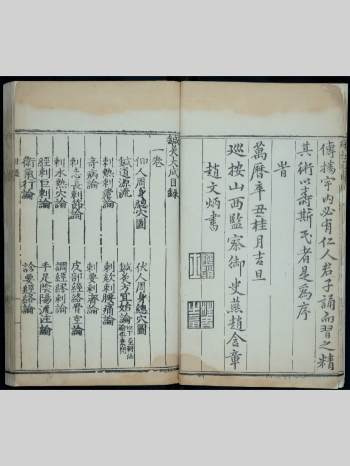 傳播宇內必有仁人君子誦而習之精
其術以壽斯民者是為序
旹
萬曆辛丑桂月吉旦
巡按山西監察御史燕趙含章
趙文炳書
鍼灸大成目錄
一卷
仰人周身總穴圖 伏人周身總穴圖
鍼道源流 鍼灸方宜始論
刺熱刺瘧論 刺欬刺腰痛論
奇病論 刺要刺齊論
刺志長刺節論 皮部經絡骨空論
刺水熱穴論 調經繆刺論
經刺巨刺論 手足陰陽流注論
衛氣行論 診要經終論